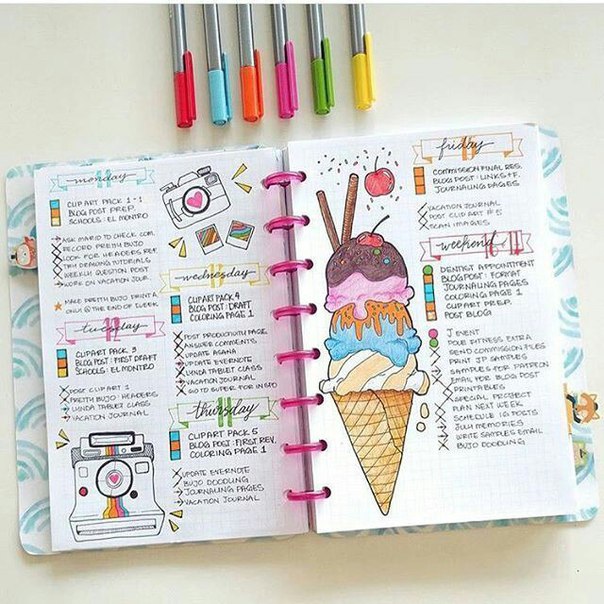 monday
CLIP ART PACK 1-1
BLOG POST PREP.
SCHOOLS: EL MONTRO
ASK MARIO TO CHECK COM.
RECORD PRETTY BUJO
LOOK FOR HEADERS REF.
TRY DRAWING TUTORIALS
WEEKLY QUESTION POST
WORK ON VACATION JOUR
MAKE PRETTY BUJO PRINTA
ONLY @ THE END OF WEEK.
tuesday
CLIPART PACK 3
BLOG POST: FIRST DRAFT
SCHOOLS: EL MONTRO
POST CLIP ART 1
PRETTY BUJO: HEADERS
LYNDA TABLET CLASS
VACATION JOURNAL
wednesday
CLIPART PACK 4
BLOG POST: DRAFT
COLORING PAGE 1
POST PRODUCTIVITY PAGE
ANSWER COMMENTS
UPDATE ASANA
UPDATE EVERNOTE
LYNDA TABLET CLASS
VACATION JOURNAL
GO TO SUPER FOR INSPO
thursday
CLIPART PACK 5
BLOG POST: FIRST REV.
COLORING PAGE 1
UPDATE EVERNOTE
BUJO DOODLING
JOURNALING PAGES
VACATION JOURNAL
friday
COMMISSION FINAL RES.
BLOG POST: LINKS + F.
JOURNALING PAGES
VACATION JOURNAL
POST CLIP ART #5
SCAN IMAGES
weekend
DENTIST APPOINTMENT
BLOG POST: FORMAT
JOURNALING PAGES
COLORING PAGE 1
CLIP ART PREP.
POST BLOG
J EVENT
POUR FITNESS EXTRA
SEND COMMISSION FILES
PRINT JP SAMPLES
SAMPLES FOR PATREON
EMAIL FOR BLOG POST
PRINTABLES
SPECIAL PROJECT
PLAN NEXT WEEK
SCHEDULE IG POSTS
JULY MEMORIES
WRITE SAMPLES EMAIL
BUJO DOODLING